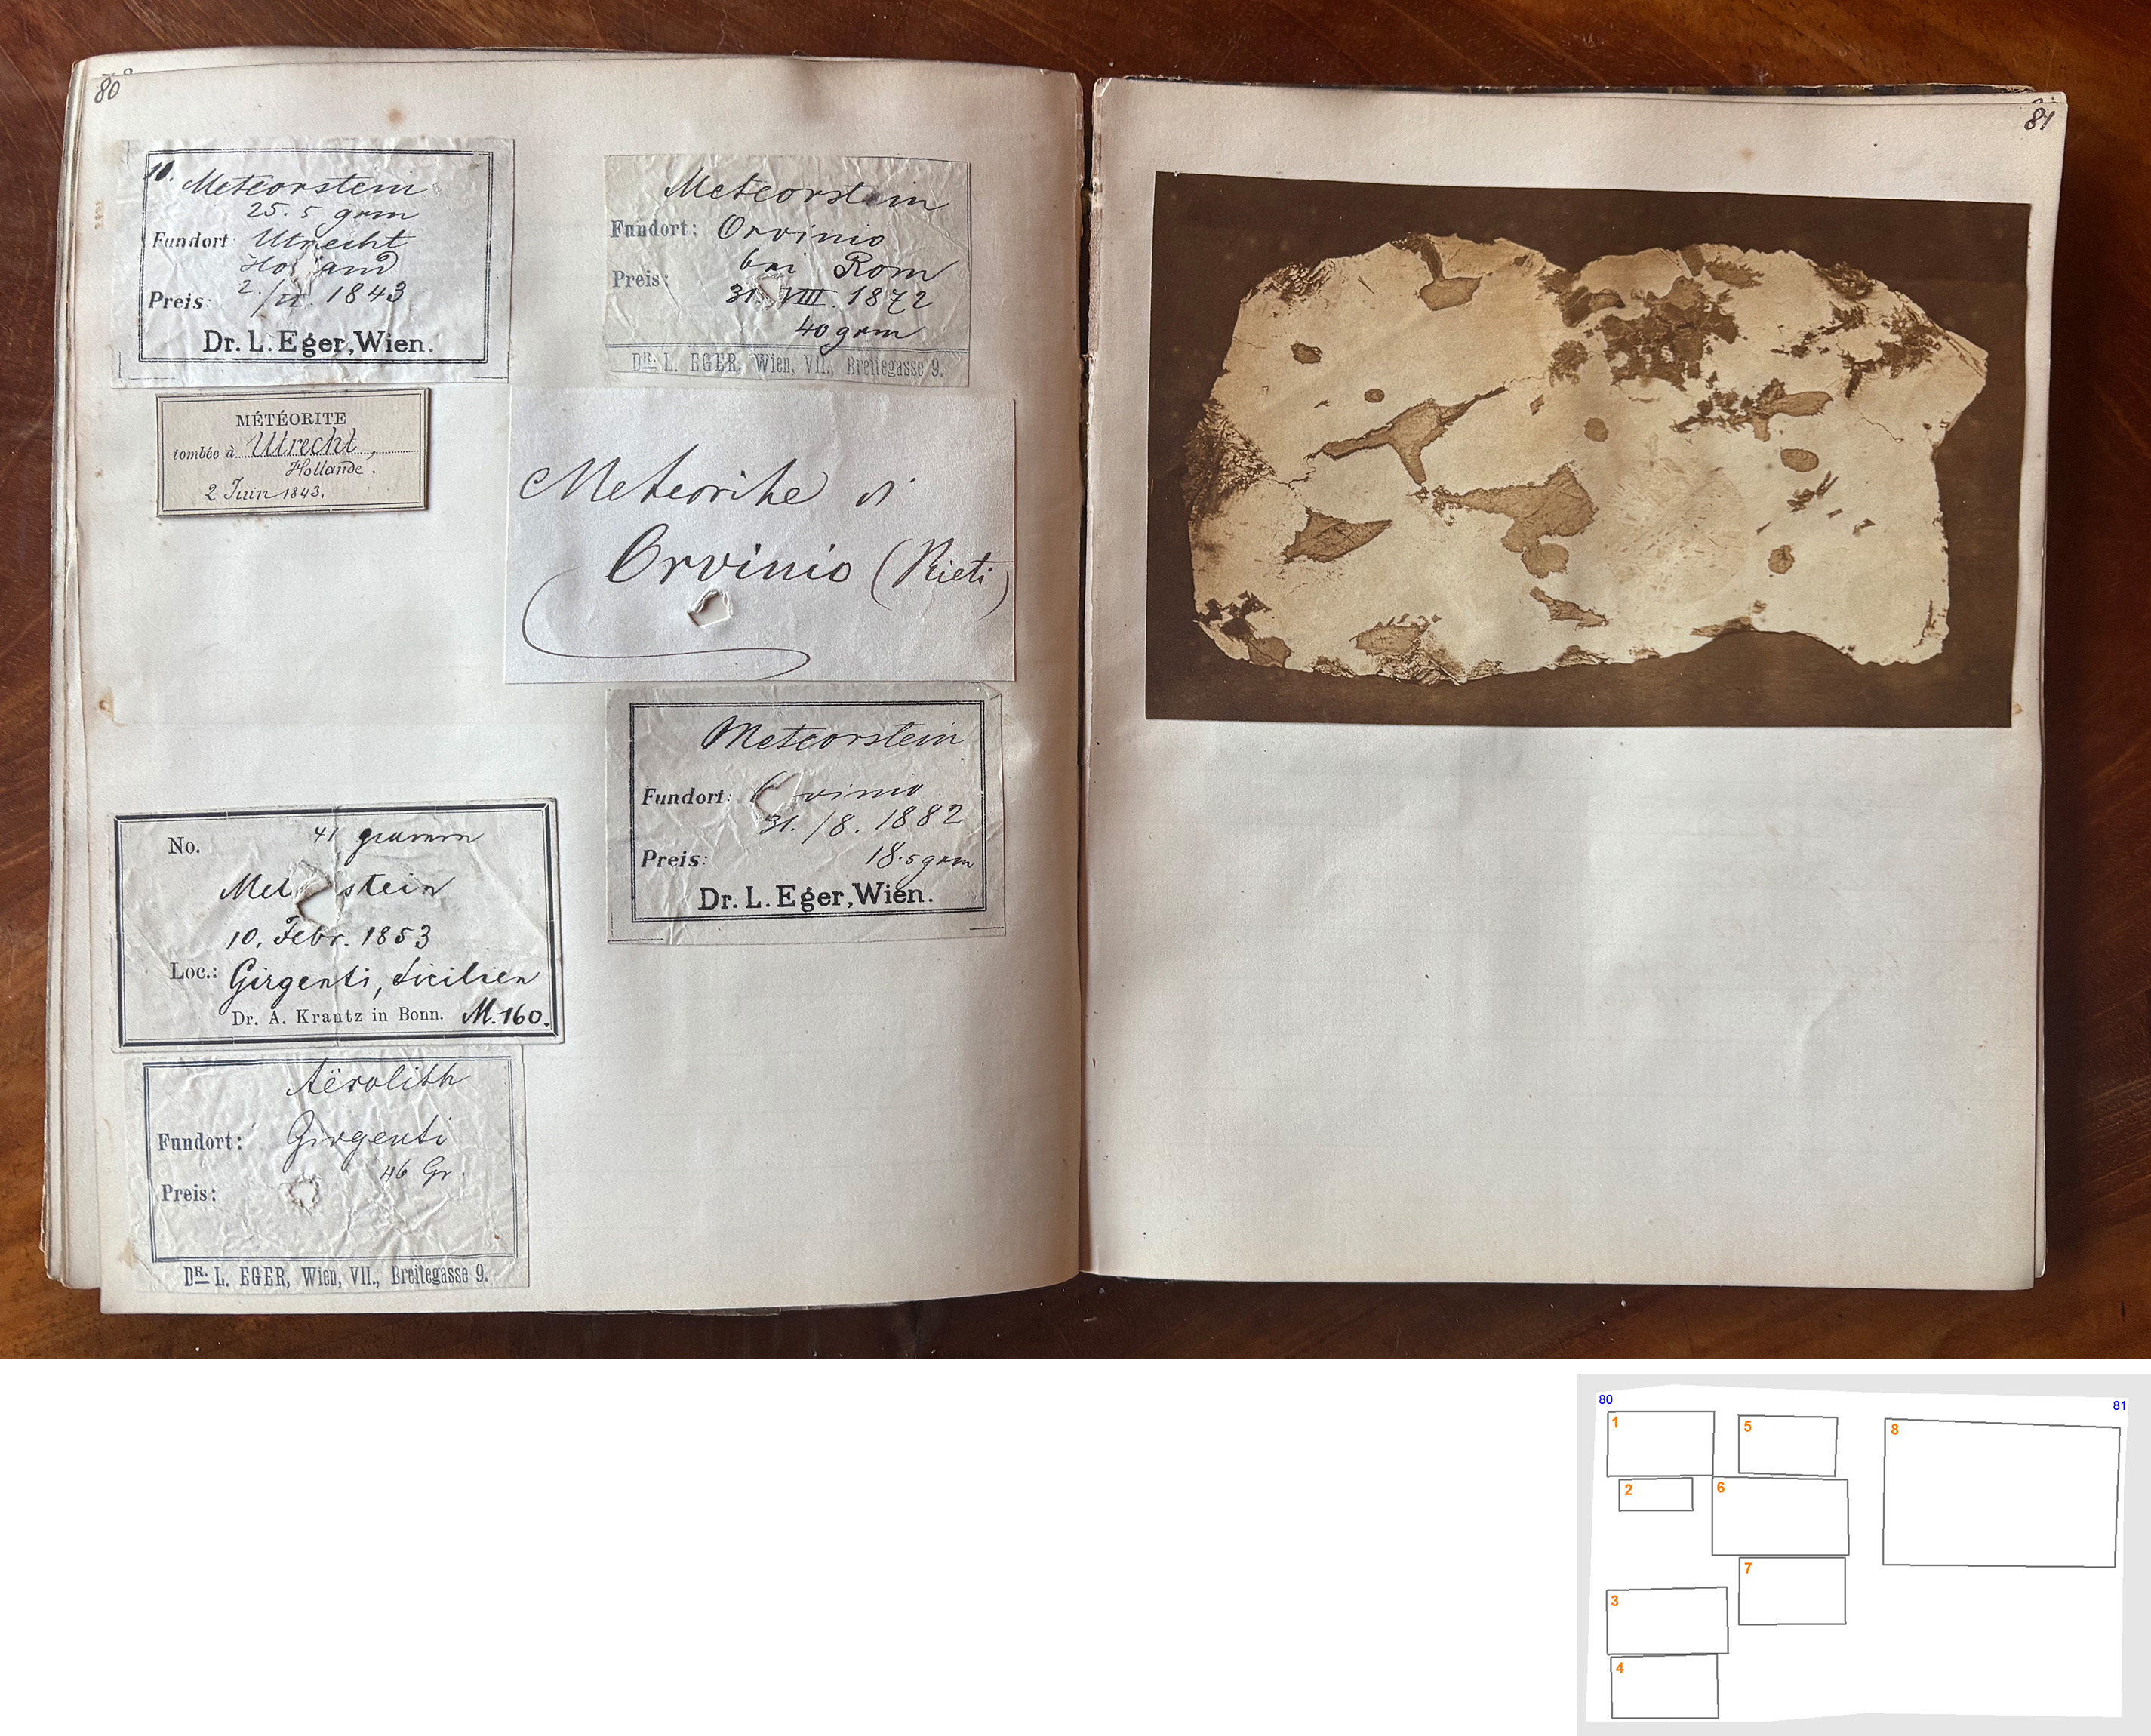 80
10. Meteorstein
25.5 grm
Fundort: Utrecht
Holland
Preis: 2./VI. 1843
Dr. L. Eger, Wien.
MÉTÉORITE
tombée à Utrecht,
Hollande.
2 Juin 1843.
No. 41 gramm
Met stein
10. Febr. 1853
Loc.: Girgenti, Sicilien
Dr. A. Krantz in Bonn. M.160.
Aërolith
Fundort: Girgenti
46 Gr.
Preis:
DR. L. EGER, Wien, VII., Breitegasse 9.
Meteorstein
Fundort: Orvinio
bei Rom
Preis: 31. VIII. 1872
40 grm
DR. L. EGER, Wien, VII., Breitegasse 9.
Meteorite di
Orvinio (Rieti)
Meteorstein
Fundort: Orvinio
31./8. 1882
Preis: 18.5 grm
Dr. L. Eger, Wien.
81
80
81
1
5
8
2
6
7
3
4